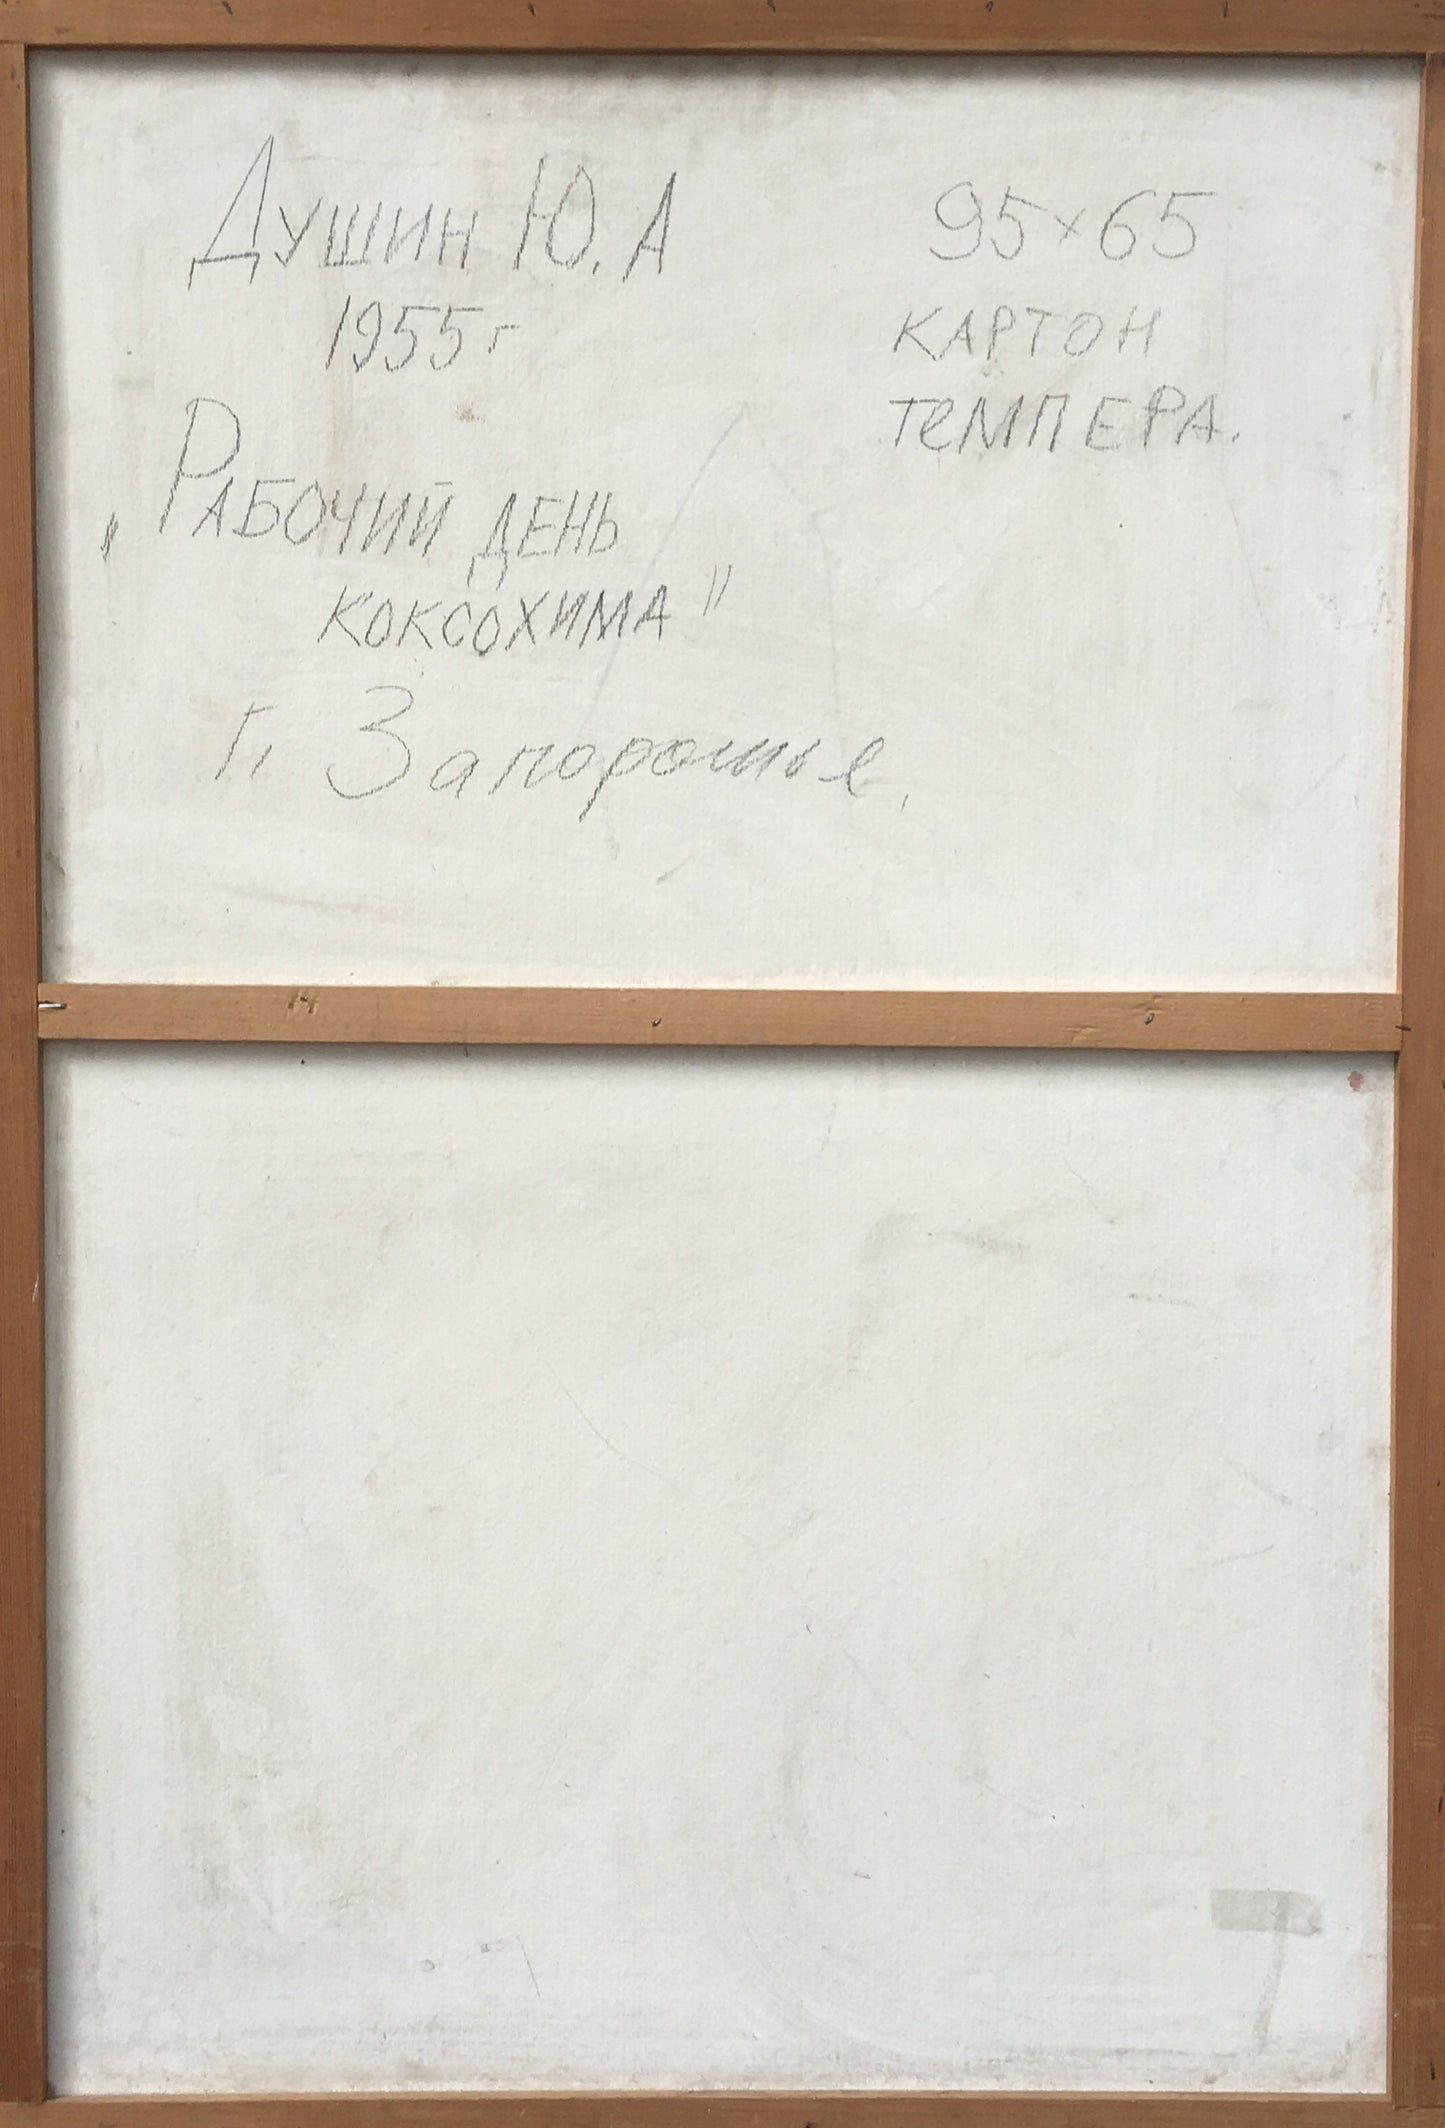 Душин Ю. А
1955 г
„Рабочий день
коксохима"
г. Запорожье.
95 × 65
картон
темпера.